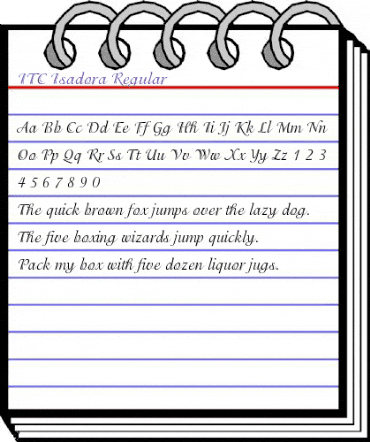 ITC Isadora Regular
Aa Bb Cc Dd Ee Ff Gg Hh Ii Jj Kk Ll Mm Nn
Oo Pp Qq Rr Ss Tt Uu Vv Ww Xx Yy Zz 1 2 3
4 5 6 7 8 9 0
The quick brown fox jumps over the lazy dog.
The five boxing wizards jump quickly.
Pack my box with five dozen liquor jugs.